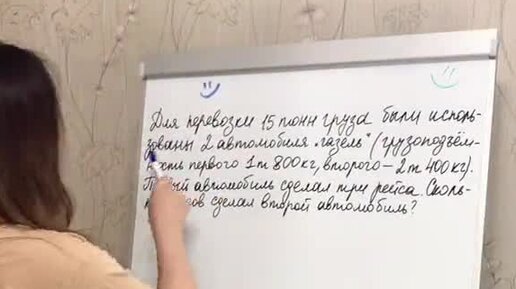 Для перевозки 15 тонн груза были исполь-
зованы 2 автомобиля "газель" (грузоподъём-
ность первого 1 т 800 кг, второго – 2 т 400 кг).
автомобиль сделал три рейса. Сколь-
сделал второй автомобиль?